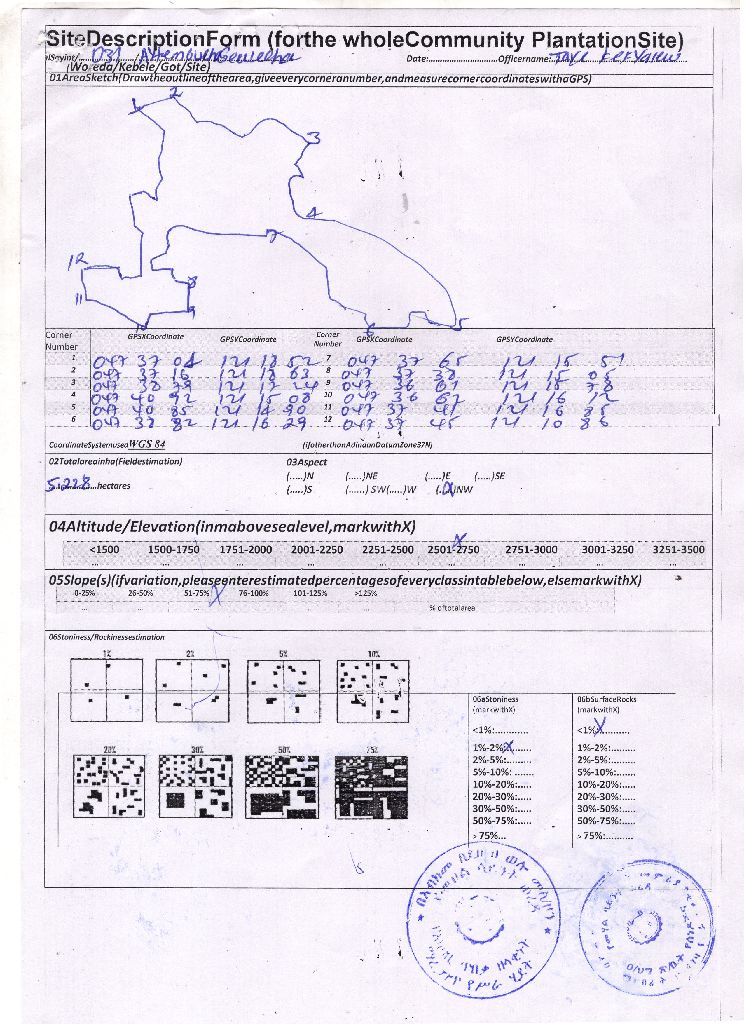 SiteDescriptionForm (forthe wholeCommunity PlantationSite)
Date:..............................Officername:
(Woreda/Kebele/Got/Site)
01AreaSketch(Drawtheoutlineofthearea,giveeverycorneranumber,andmeasurecornercoordinateswithaGPS)
1 2
3
4
7
12
8
11
5
6
Corner Number GPSXCoordinate GPSYCoordinate Corner Number GPSXCoordinate GPSYCoordinate
1 047 37 04 121 18 52 7 047 37 65 121 15 51
2 047 37 16 121 18 63 8 047 37 38 121 15 05
3 047 38 79 121 17 24 9 047 36 61 121 15 78
4 047 40 92 121 15 08 10 047 36 67 121 16 12
5 047 40 85 121 14 90 11 047 37 41 121 16 85
6 047 38 82 121 16 29 12 047 37 45 121 10 86
CoordinateSystemusedWGS 84 (ifotherthanAdindanDatumZone37N)
02Totalareainha(Fieldestimation) 03Aspect
(.....)N (.....)NE (.....)E (.....)SE
5.228 hectares (.....)S (......) SW(.....)W (.X)NW
04Altitude/Elevation(inmabovesealevel,markwithX)
<1500 1500-1750 1751-2000 2001-2250 2251-2500 2501-2750 2751-3000 3001-3250 3251-3500
X
05Slope(s)(ifvariation,pleaseenterestimatedpercentagesofeveryclassintablebelow,elsemarkwithX)
0-25% 26-50% 51-75% X 76-100% 101-125% >125%
% oftotalarea
06Stoniness/Rockinessestimation
1% 2% 5% 10%
20% 30% 50% 75%
06aStoniness (markwithX)
<1%:...........
1%-2%:X......
2%-5%:......
5%-10%: ......
10%-20%:.....
20%-30%:.....
30%-50%:.....
50%-75%:.....
> 75%...
06bSurfaceRocks (markwithX)
<1%X
1%-2%:........
2%-5%:........
5%-10%:.......
10%-20%:.....
20%-30%:.....
30%-50%:.....
50%-75%:.....
> 75%:..........